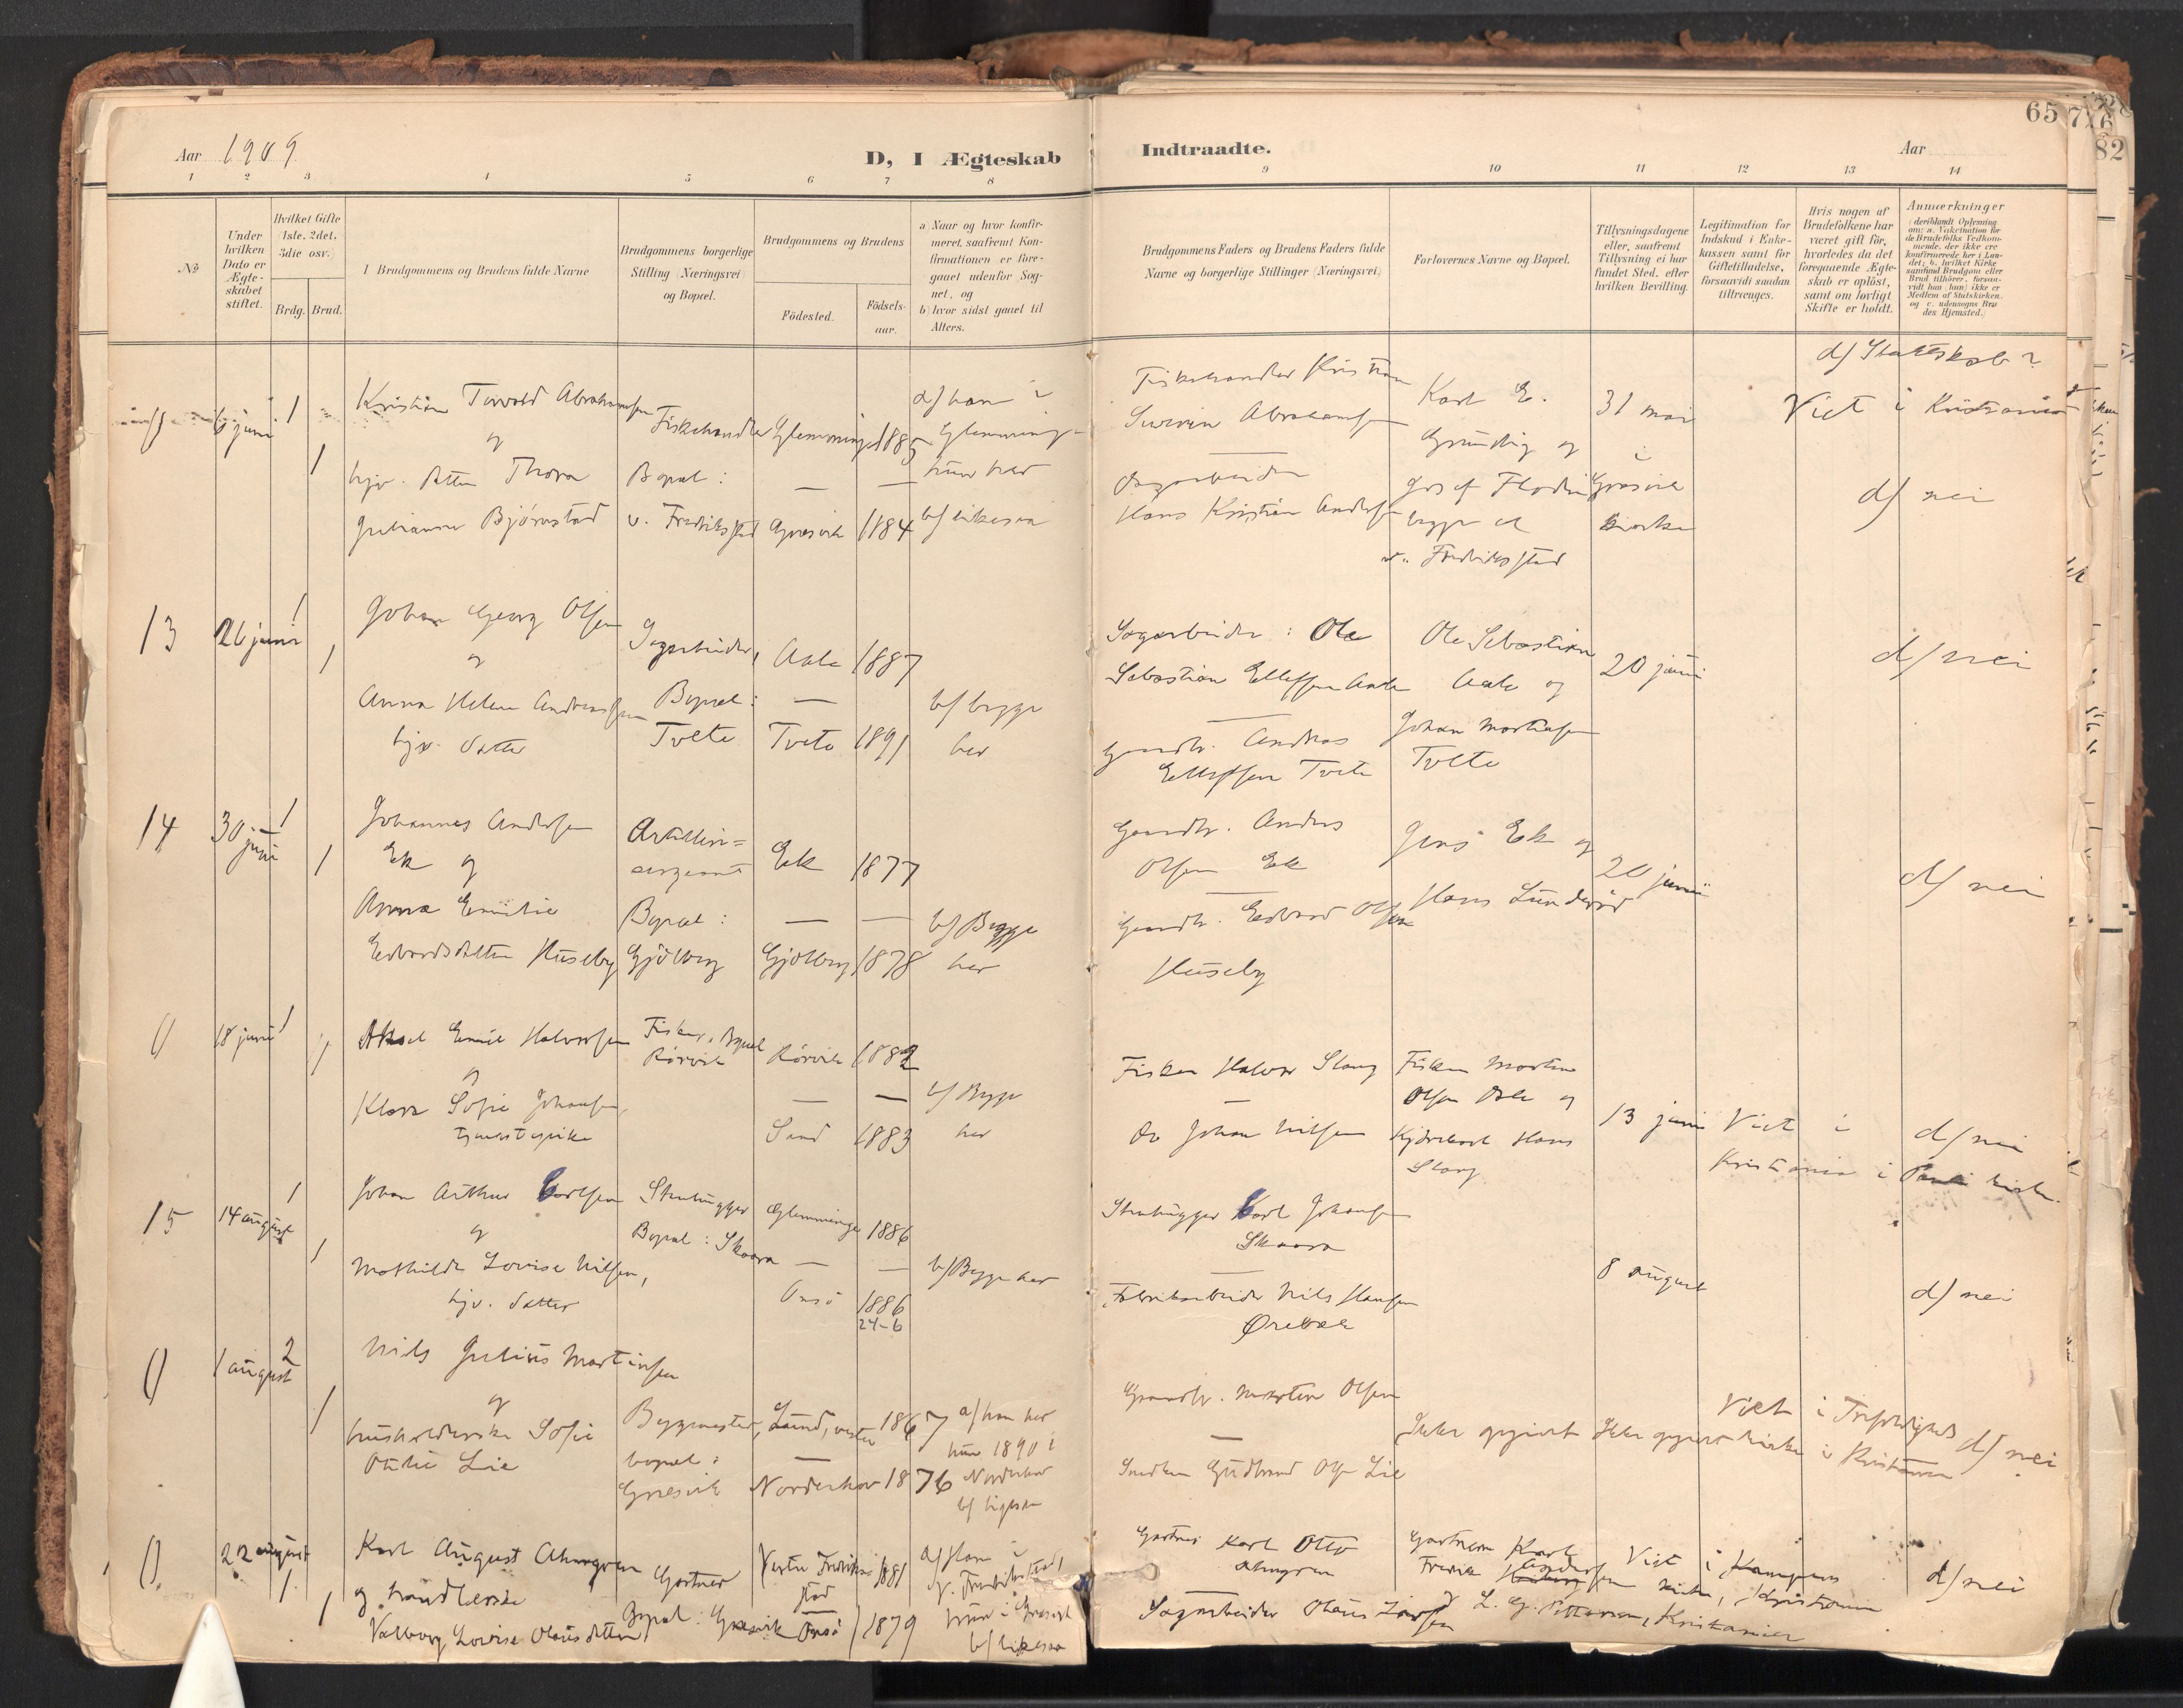 Aar 1909
D, I Ægteskab
Indtraadte.
Aar
65
82
1 2 3 4 5 6 7 8
9 10 11 12 13 14
No
Under hvilken Dato er Ægteskabet stiftet.
Hvilket Gifte 1ste. 2det. 3die osv.
Brdg. Brud.
Brudgommens og Brudens fulde Navne
Brudgommens borgerlige Stilling (Næringsvei) og Bopæl.
Brudgommens og Brudens
Födested.
Födselsaar.
a) Naar og hvor konfirmeret, saafremt Konfirmationen er foregaaet udenfor Sognet, og
b) hvor sidst gaaet til Alters.
Brudgommens Faders og Brudens Faders fulde Navne og borgerlige Stillinger (Næringsvei)
Forlovernes Navne og Bopæl.
Tillysningsdagene eller, saafremt Tillysning ei har fundet Sted. efter hvilken Bevilling.
Legitimation for Indskud i Enkekassen samt for Giftetilladelse, forsaavidt saadan tiltrænges.
Hvis nogen af Brudefolkene har været gift för, hvorledes da det foregaaende Ægteskab er oplöst, samt om lovligt Skifte er holdt.
Anmærkninger
6 juni 1
Kristian Torvald Abrahamsen
og
1
hjv. datter Thora
Julianne Bjørnstad
Fiskehandler
Bopæl:
v. Fredriksstad
Glemminge 1885
Græsvik 1884
a) han i
Glemminge
hun her
b) likesaa
Fiskehandler Kristian
Abrahamsen
Dagarbeider
Hans Kristian Anders
Karl E.
og
Josef
begge
v. Fredriksstad
31 mai
i
Græsvik
kirke
d) Statskab?
Viet i Kristiania
d) nei
13
26 juni 1
1
Johan Georg Olsen
og
Anna Helene Andreassen
hjv. datter
Sagarbeider,
Bopæl:
Tvete
Aale 1887
Tvete 1891
b) begge
her
Sagarbeider: Ole
Sebastian Ellefsen Aale
Gaardbr. Andreas
Ellefsen Tvete
Ole Sebastian
Aale og
Johan Mathisen
Tvete
20 juni
d) nei
14
30 juni 1
1
Johannes Andersen
Ek og
Anna Emilie
Edvardsdatter Huseby
Artilleri=
sergeant
Bopæl:
Gjölberg
Ek 1877
Gjølberg 1878
b) Begge
her
Gaardbr. Anders
Olsen Ek
Gaardbr. Edvard Olsen
Huseby
Jens Ek og
Hans Lunderød
20 juni
d) nei
()
18 juni 1
1
Aksel Emil Halvorsen
og
Klara Sofie Johansen,
tjenestepike
Fisker, Bopæl
Rörvik
Rörvik 1882
Sand 1883
b) Begge
her
Fisker Halvor Slang
Do Johan Nilsen
Fisker Martin
Olsen Dale og
Hans
Slang
13 juni
Viet i
Kristiania i Pauli kirke.
d) nei
15
14 august 1
1
Johan Arthur Carlsen
og
Mathilde Lovise Nilsen,
hjv. datter
Stenhugger
Bopæl: Skaara
Glemminge 1886
Onsö 1886
24-6
b) Begge her
Stenhugger Carl Johansen
Skaara
Fabrikarbeider Nils Hansen
Ørebæk
8 august
d) nei
()
1 august 2
1
Nils Julius Martinsen
og
husholderske Sofie
Otilie Lie
Bygmester,
bopæl:
Græsvik
Lund, vestre 1867
Norderhov 1876
a) han her
hun 1890 i
Norderhov
b) ligesaa
Gaardbr. Martin Olsen
Gudbrand Olsen Lie
Ikke opgivet
Ikke opgivet
Viet i Trefoldigheds
kirke i Kristiania
d) nei
()
22 august
1
1
Karl August Almgren
og handlerske
Valborg Lovise Olausdatter
Gartner
Bopæl: Græsvik
Vestre Fredriksstad 1881
Onsö 1879
a) Han i
v. Fredriksstad,
hun i Græsvik
b) likesaa
Gartner Karl Otto
Almgren
Sagarbeider Olaus Larsen
Gartnerne Karl
Fredrik Andersen
og L. G. Pettersen, Kristiania
Viet i Kampens
kirke, Kristiania
d) nei